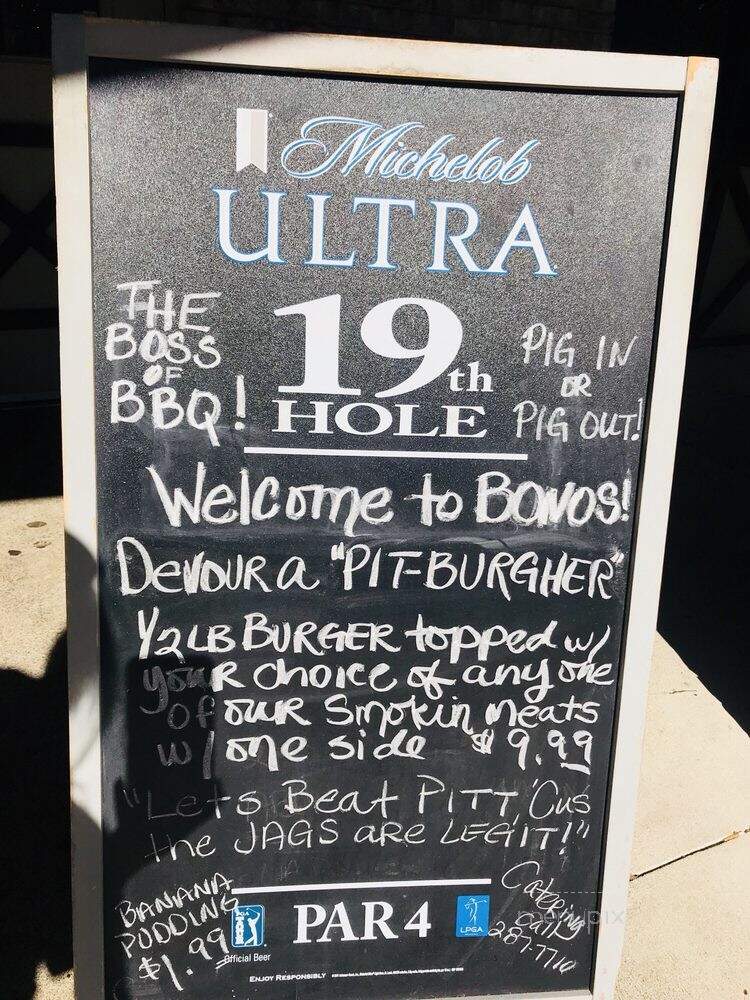 Michelob
ULTRA
THE
BOSS
OF
BBQ!
19th
HOLE
PIG IN
OR
PIG OUT!
Welcome to BONOS!
DEVOUR a "PIT-BURGHER"
1/2 LB BURGER topped w/
your choice of any one
of our Smokin meats
w/ one side $9.99
"Lets Beat PITT 'Cus
the JAGS are LEGIT!"
BANANA
PUDDING
$1.99
PGA
Official Beer
PAR 4
LPGA
Catering
Call
287-7710
menupix
ENJOY RESPONSIBLY